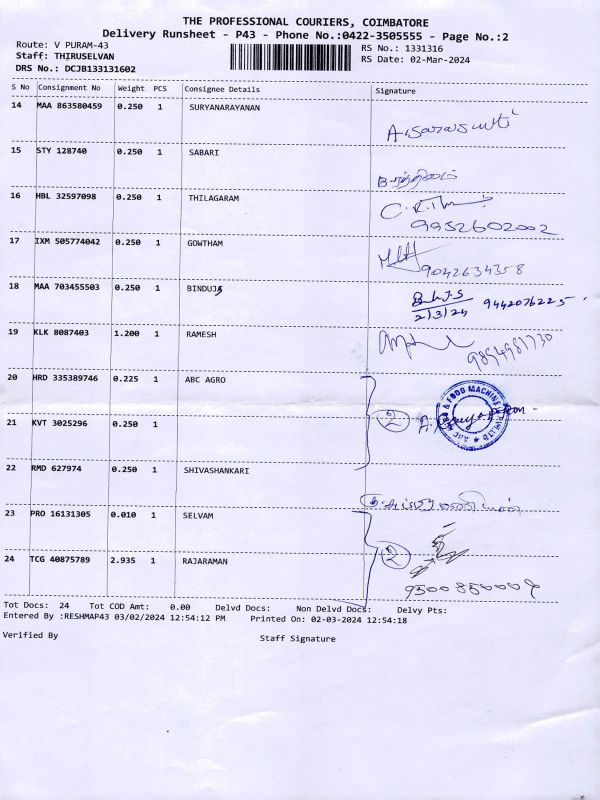 THE PROFESSIONAL COURIERS, COIMBATORE
Delivery Runsheet - P43 - Phone No.:0422-3505555 - Page No.:2
Route: V PURAM-43
RS No.: 1331316
Staff: THIRUSELVAN
RS Date: 02-Mar-2024
DRS No.: DCJB133131602
S No Consignment No Weight PCS Consignee Details Signature
14 MAA 863580459 0.250 1 SURYANARAYANAN
15 STY 128740 0.250 1 SABARI
16 HBL 32597098 0.250 1 THILAGARAM
9952602002
17 IXM 505774042 0.250 1 GOWTHAM
9042634358
18 MAA 703455503 0.250 1 BINDUJS
2/3/24 9442076225
19 KLK 8087403 1.200 1 RAMESH
20 HRD 335389746 0.225 1 ABC AGRO
2
21 KVT 3025296 0.250 1
22 RMD 627974 0.250 1 SHIVASHANKARI
23 PRO 16131305 0.010 1 SELVAM
2
24 TCG 40875789 2.935 1 RAJARAMAN
Tot Docs: 24 Tot COD Amt: 0.00 Delvd Docs: Non Delvd Docs: Delvy Pts:
Entered By :RESHMAP43 03/02/2024 12:54:12 PM Printed On: 02-03-2024 12:54:18
Verified By Staff Signature